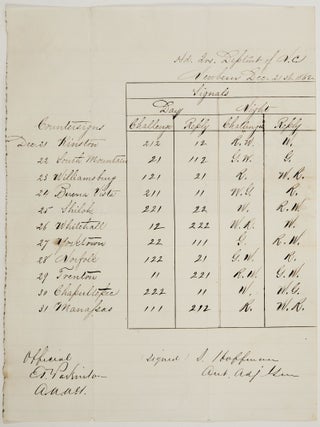 Hd. Qrs. Deptmt of N.C
Newbern Dec. 21st 1862
Signals
Day Night
Countersigns Challenge Reply Challenge Reply
Dec. 21 Winston 212 12 R.W. W.
22 South Mountain 21 112 G.W. G.
23 Williamsburg 121 21 R. W.R.
24 Buena Vista 211 11 W.G R.
25 Shiloh 221 22 W. R.W
26 Whitehall 12 222 W.R. W.
27 Yorktown 22 111 G. R.W.
28 Norfolk 122 21 G.W R.
29 Trenton 11 221 R.W G.W.
30 Chapultepec 222 11 W. W.G
31 Manassas 111 212 R. W.R
Official signed J. Hoffman
Ast. Adj Gen
A.A.A.G.